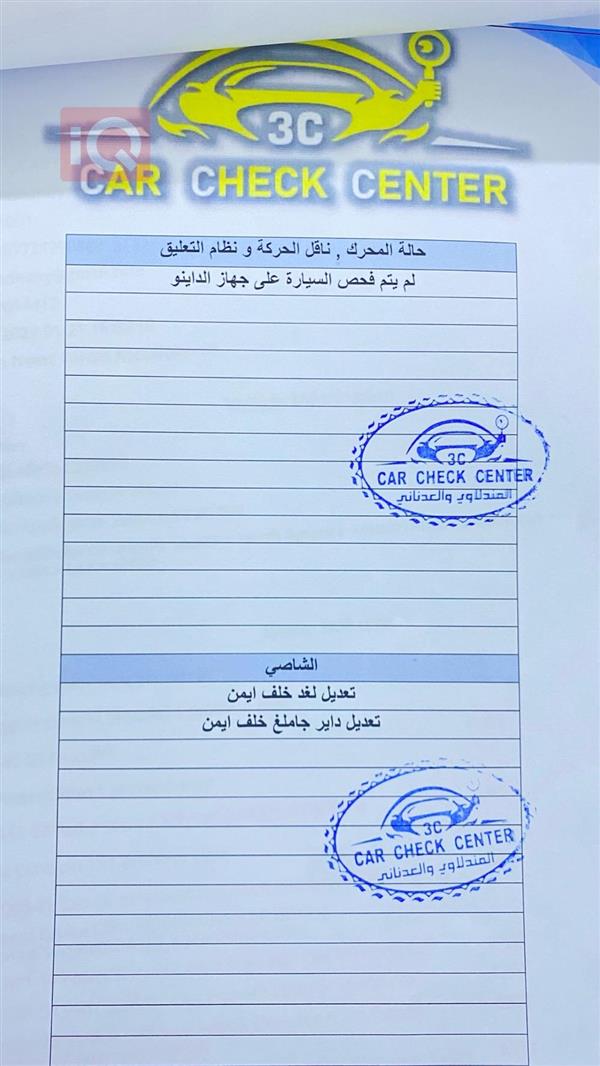 3C
iQ
CAR CHECK CENTER
حالة المحرك , ناقل الحركة و نظام التعليق
لم يتم فحص السيارة على جهاز الداينو
3C
CAR CHECK CENTER
المندلاوي والعدناني
الشاصي
تعديل لغد خلف ايمن
تعديل داير جاملغ خلف ايمن
3C
CAR CHECK CENTER
المندلاوي والعدناني